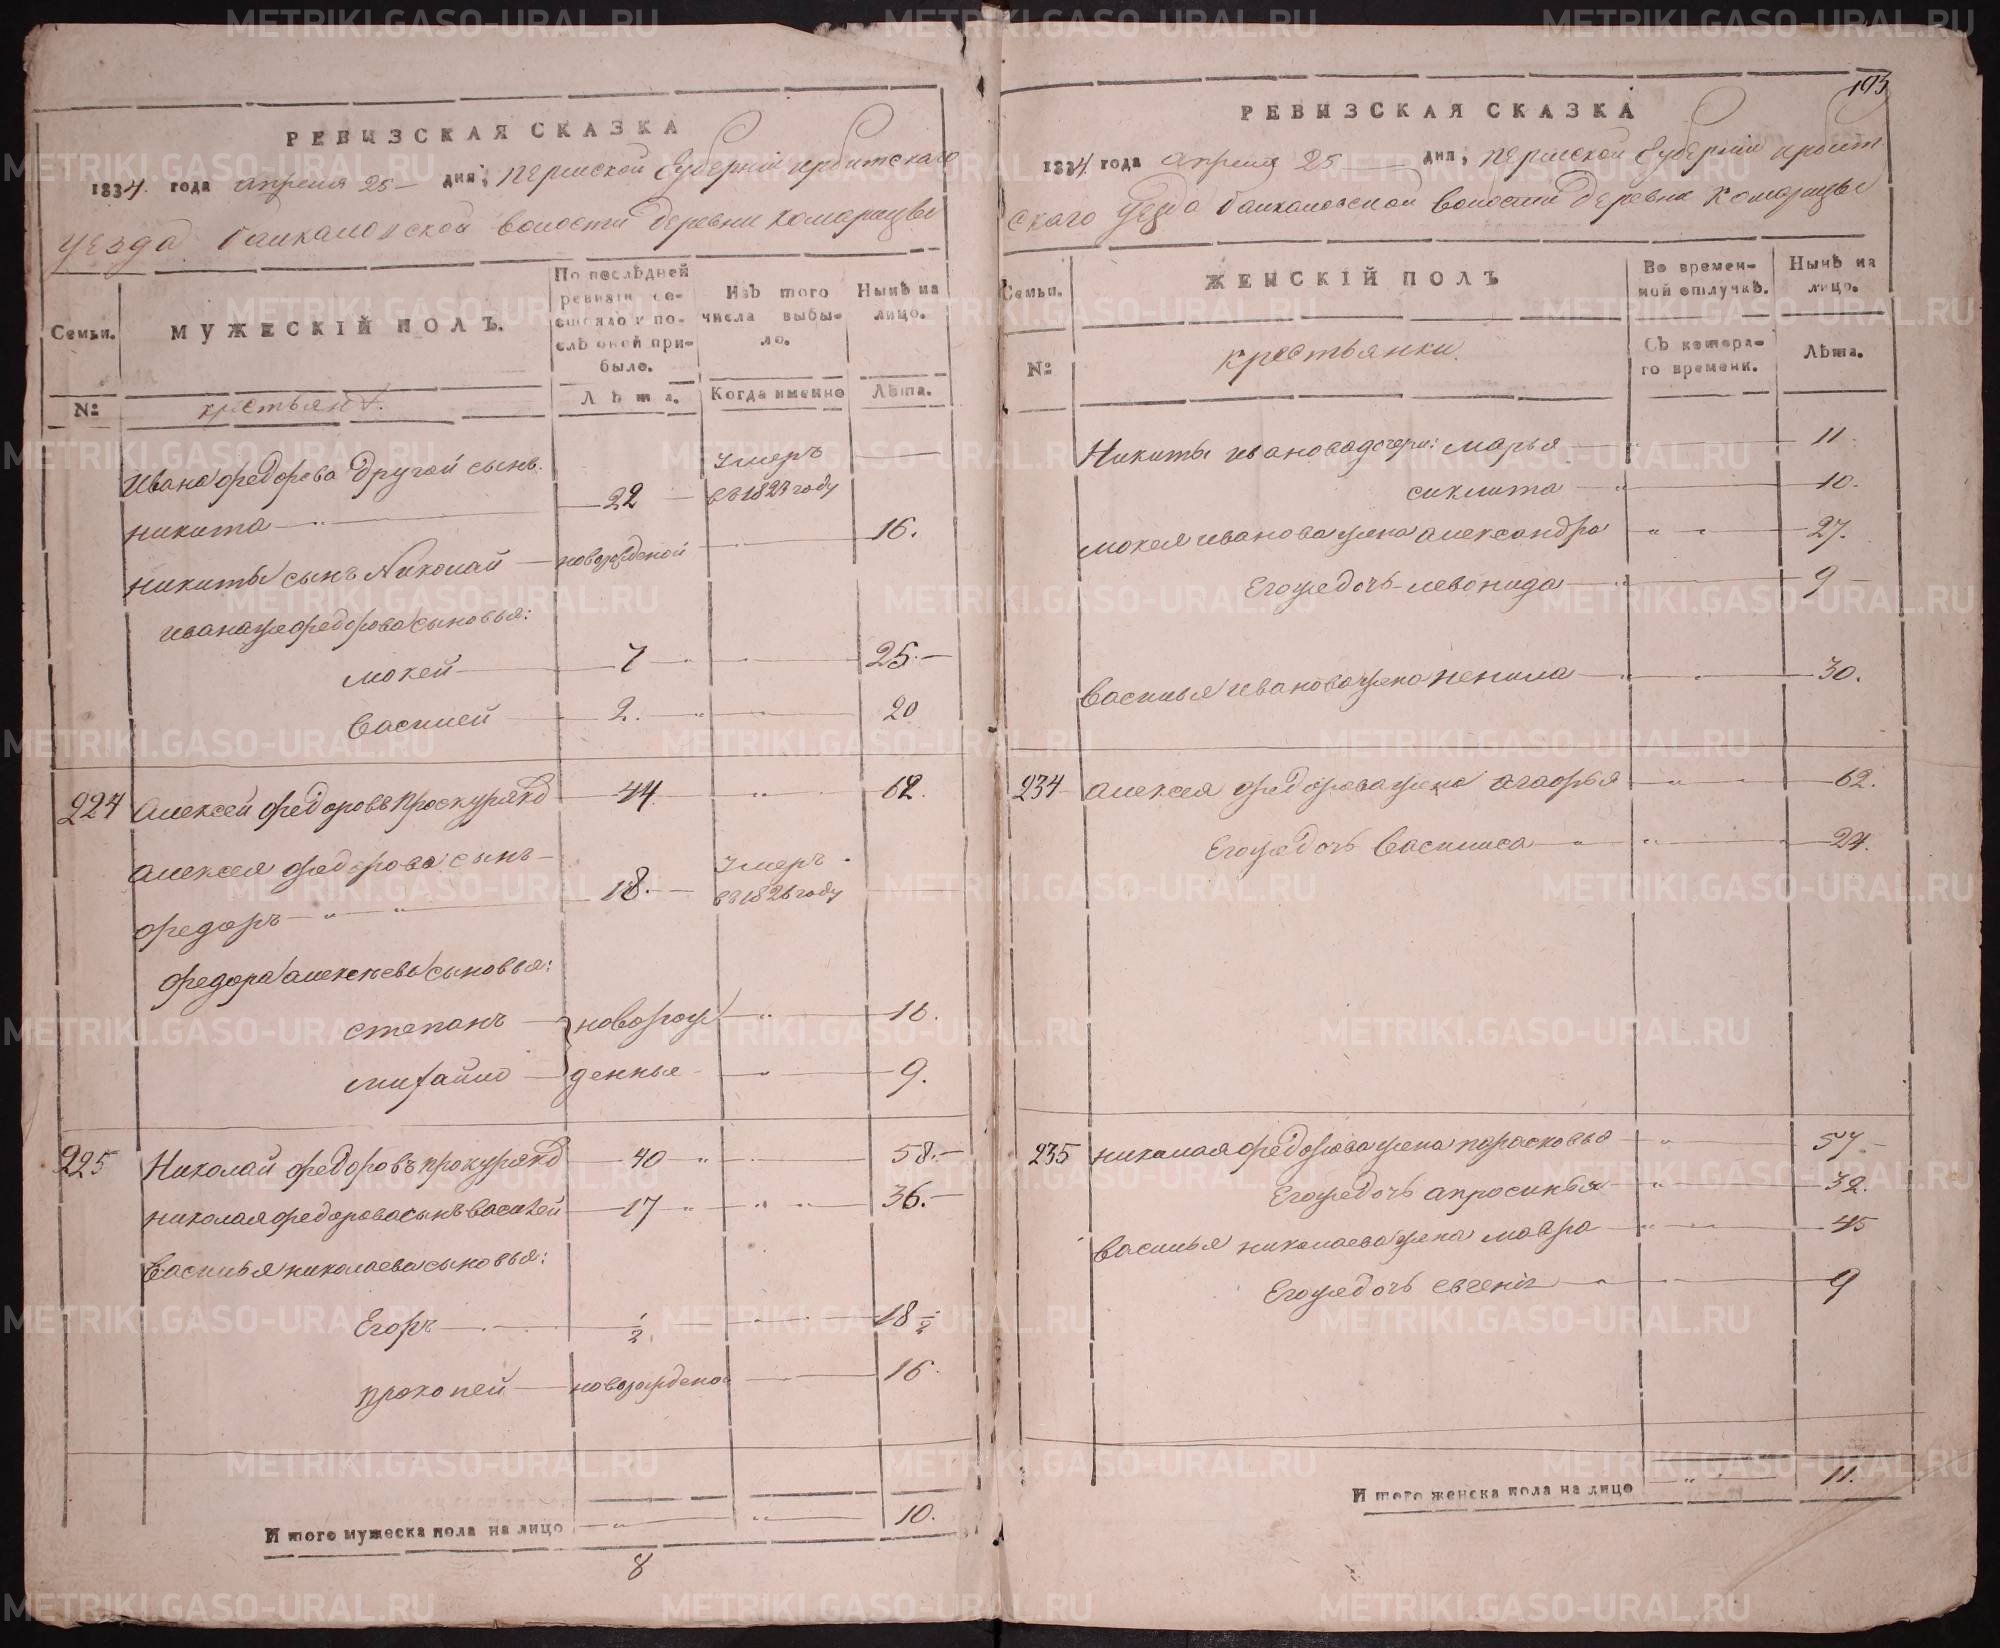 РЕВИЗСКАЯ СКАЗКА
1834. года апреля 25 — дня; пермской Губернии ирбитскаго
уезда байкаловской волости деревни комарицы
Семьи. МУЖЕСКІЙ ПОЛЪ. По послѣдней ревизіи состояло и послѣ оной прибыло. Изъ того числа выбыло. Нынѣ на лицо.
№ крестьянѣ. Лѣта. Когда именно Лѣта.
Ивана федорова другой сынъ умеръ
никита 22 въ 1827 году
никиты сынъ Николай новорожденой 16.
ивана же федорова сыновья:
мокей 7 25.
василей 2. 20
224 Алексей федоровъ Проскуряковъ 44 62.
алексея федорова сынъ умеръ
федоръ 18. въ 1826 году
федора алексеева сыновья:
степанъ новорож 16.
михайло денные 9.
225 Николай федоровъ прокуряковъ 40 58.
николая федорова сынъ василей 17 36.
василья николаева сыновья:
Егоръ 1/2. 18 1/2
прокопей новорожденой 16.
Итого мужеска пола на лицо 10.
8
193
РЕВИЗСКАЯ СКАЗКА
1834. года апреля 25 дня; пермской Губернии ирбит
скаго уезда байкаловской волости деревни комарицы
Семьи. ЖЕНСКІЙ ПОЛЪ Во временной отлучкѣ. Нынѣ на лицо.
№ крестьянки. Съ котораго времени. Лѣта.
Никиты иванова дочери: марья 11.
10.
мокея иванова жена александра 27.
Его же дочь левонида 9
василья иванова жена ненила 30.
234 алексея федорова жена агафья 62.
Его же дочь василиса 24.
235 николая федорова жена парасковья 57
Его же дочь апросинья 32.
василья николаева жена мавра 45
Его же дочь евгенія 9
Итого женска пола на лицо 11.
METRIKI.GASO-URAL.RU